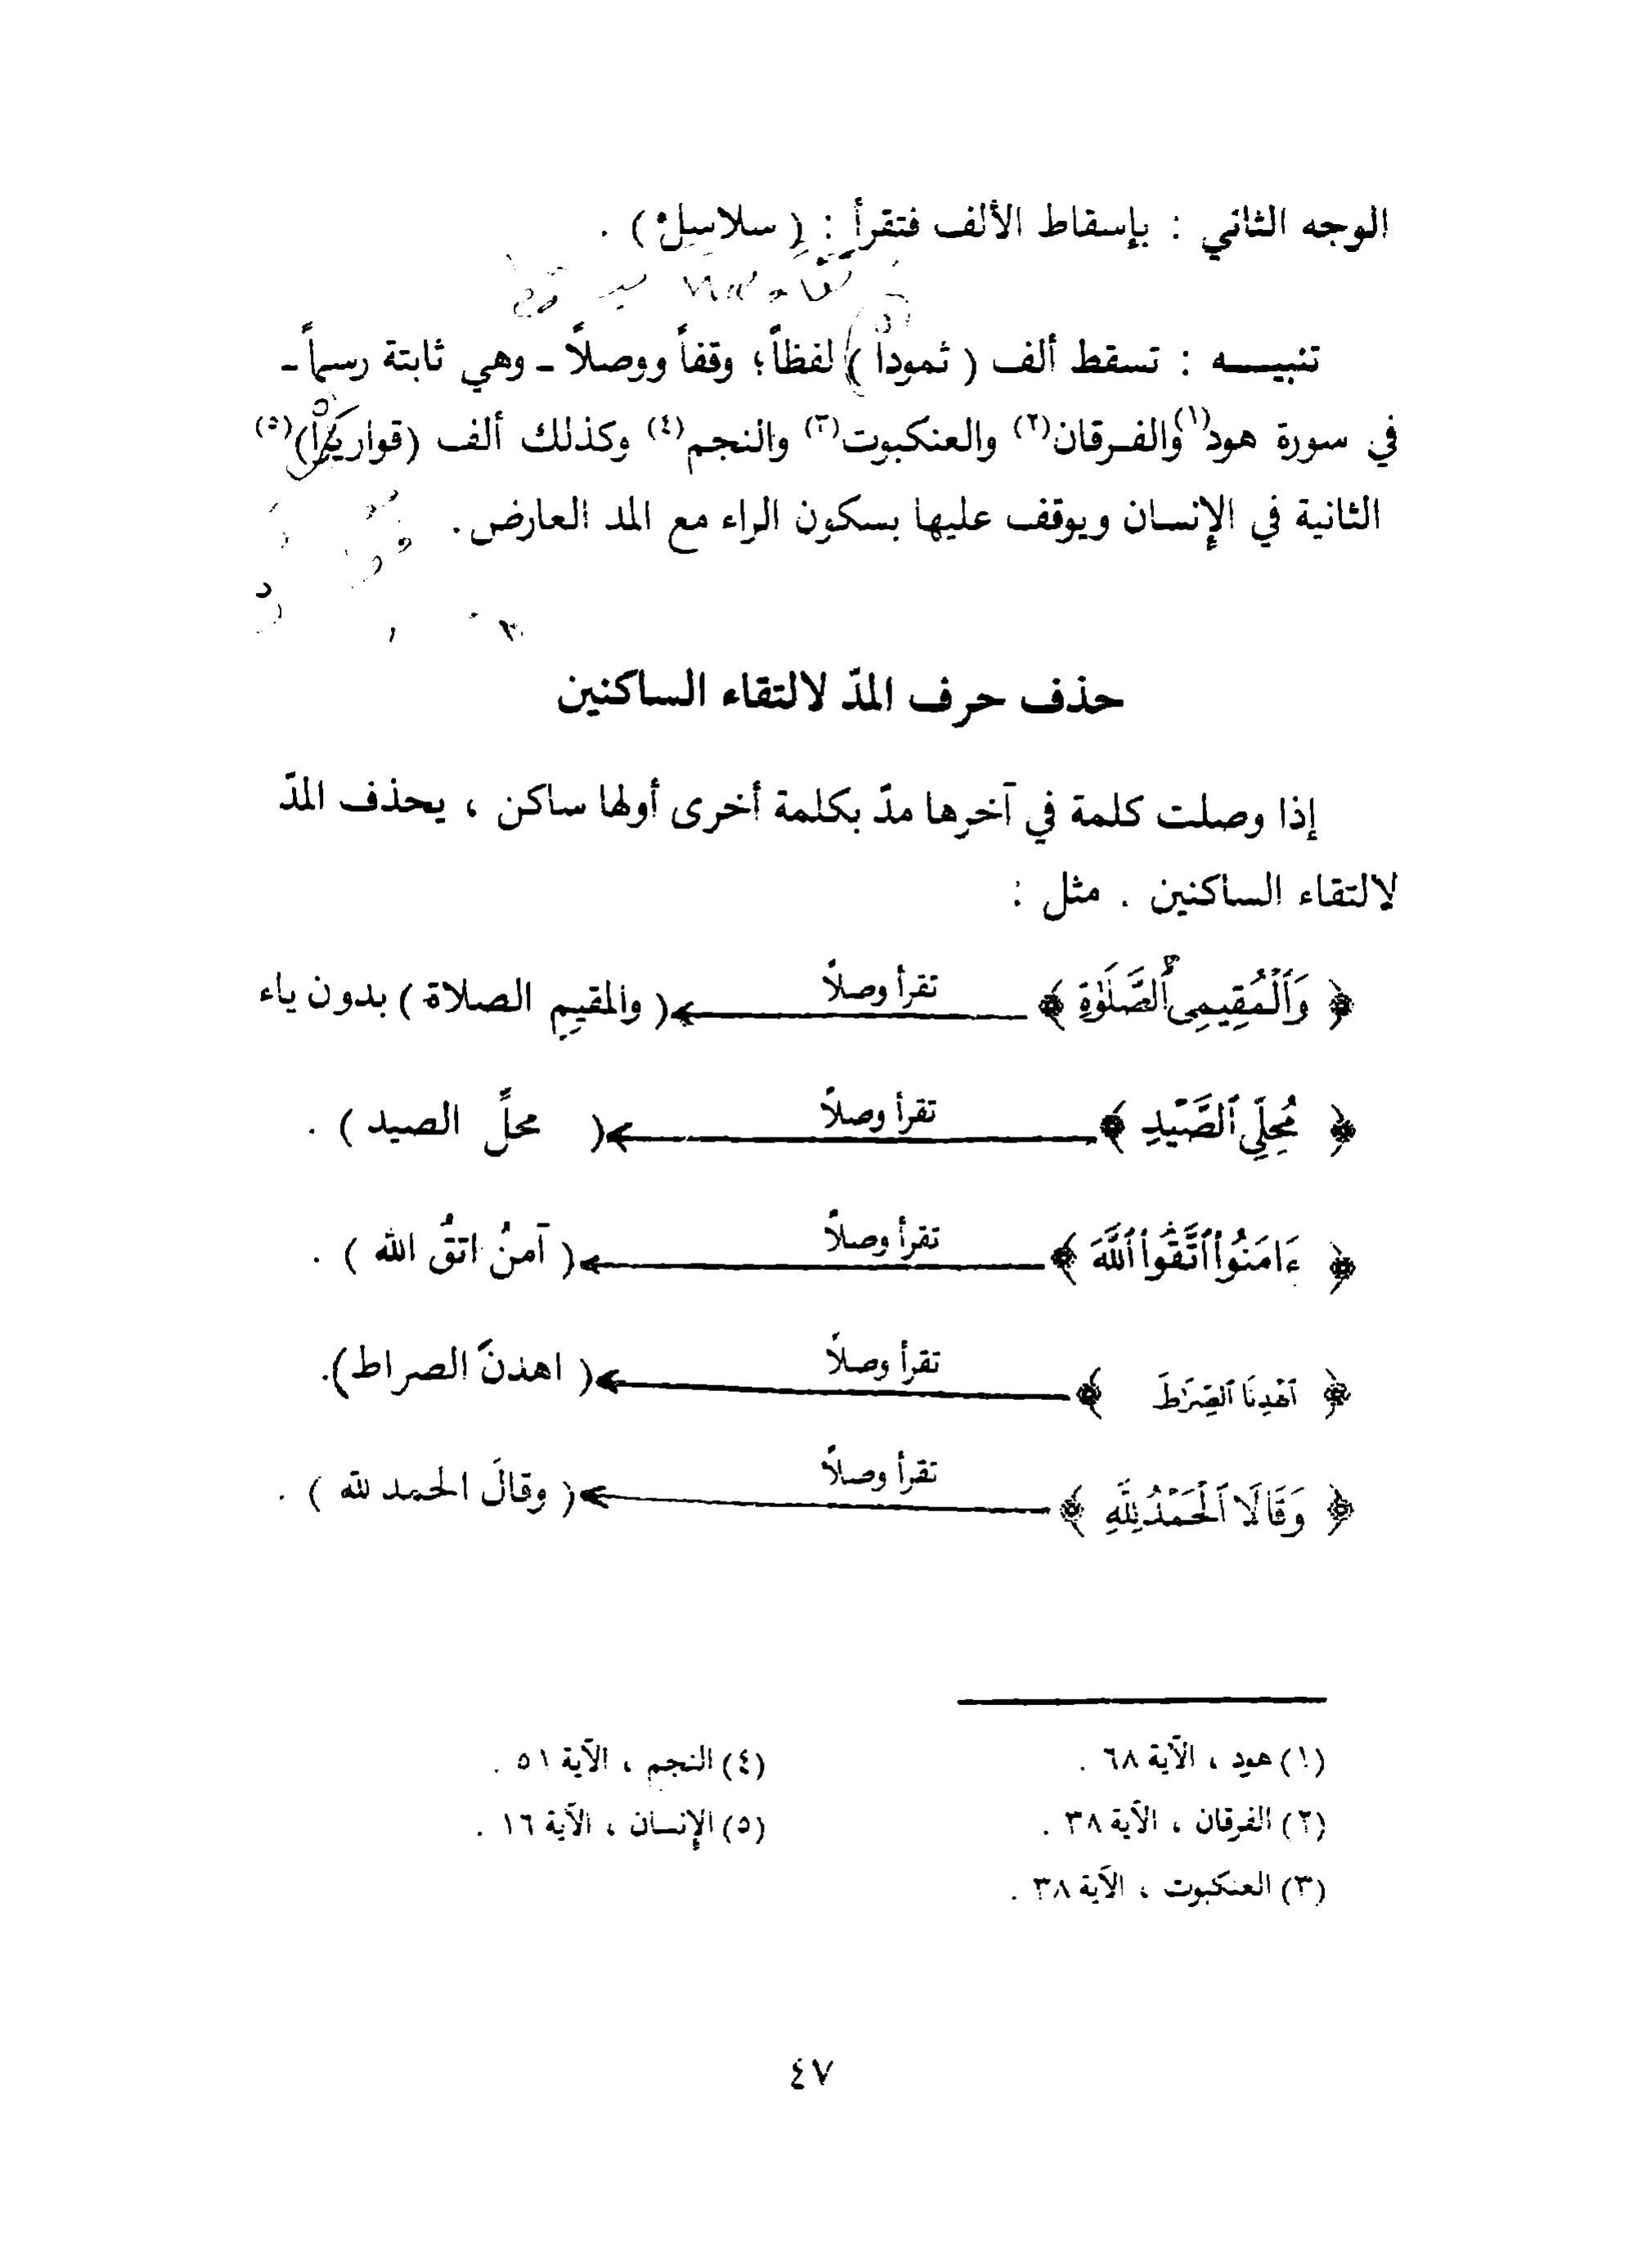 الوجه الثاني : بإسقاط الألف فتقرأ : ( سلاسِلْ ) .
تنبيـــه : تسقط ألف ( ثمودا ) لفظاً؛ وقفاً ووصلاً ـ وهي ثابتة رسماً ـ
في سورة هود(١) والفـرقان(٢) والعنكبوت(٣) والنجم(٤) وكذلك ألف (قواريرا)(٥)
الثانية في الإنسان ويوقف عليها بسكون الراء مع المد العارض .
حذف حرف المدّ لالتقاء الساكنين
إذا وصلت كلمة في آخرها مدّ بكلمة أخرى أولها ساكن ، يحذف المدّ
لالتقاء الساكنين . مثل :
﴿ وَٱلْمُقِيمِى ٱلصَّلَوٰةِ ﴾ تقرأ وصلاً ( والمقيمِ الصلاة ) بدون ياء
﴿ مُحِلِّى ٱلصَّيْدِ ﴾ تقرأ وصلاً ( محلِّ الصيد ) .
﴿ ءَامَنُوا۟ ٱتَّقُوا۟ ٱللَّهَ ﴾ تقرأ وصلاً ( آمنُ اتقُ الله ) .
﴿ ٱهْدِنَا ٱلصِّرَٰطَ ﴾ تقرأ وصلاً ( اهدنَ الصراط ).
﴿ وَقَالَا ٱلْحَمْدُ لِلَّهِ ﴾ تقرأ وصلاً ( وقالَ الحمد لله ) .
(١) هود ، الآية ٦٨ .
(٢) الفرقان ، الآية ٣٨ .
(٣) العنكبوت ، الآية ٣٨ .
(٤) النجم ، الآية ٥١ .
(٥) الإنسان ، الآية ١٦ .
٤٧